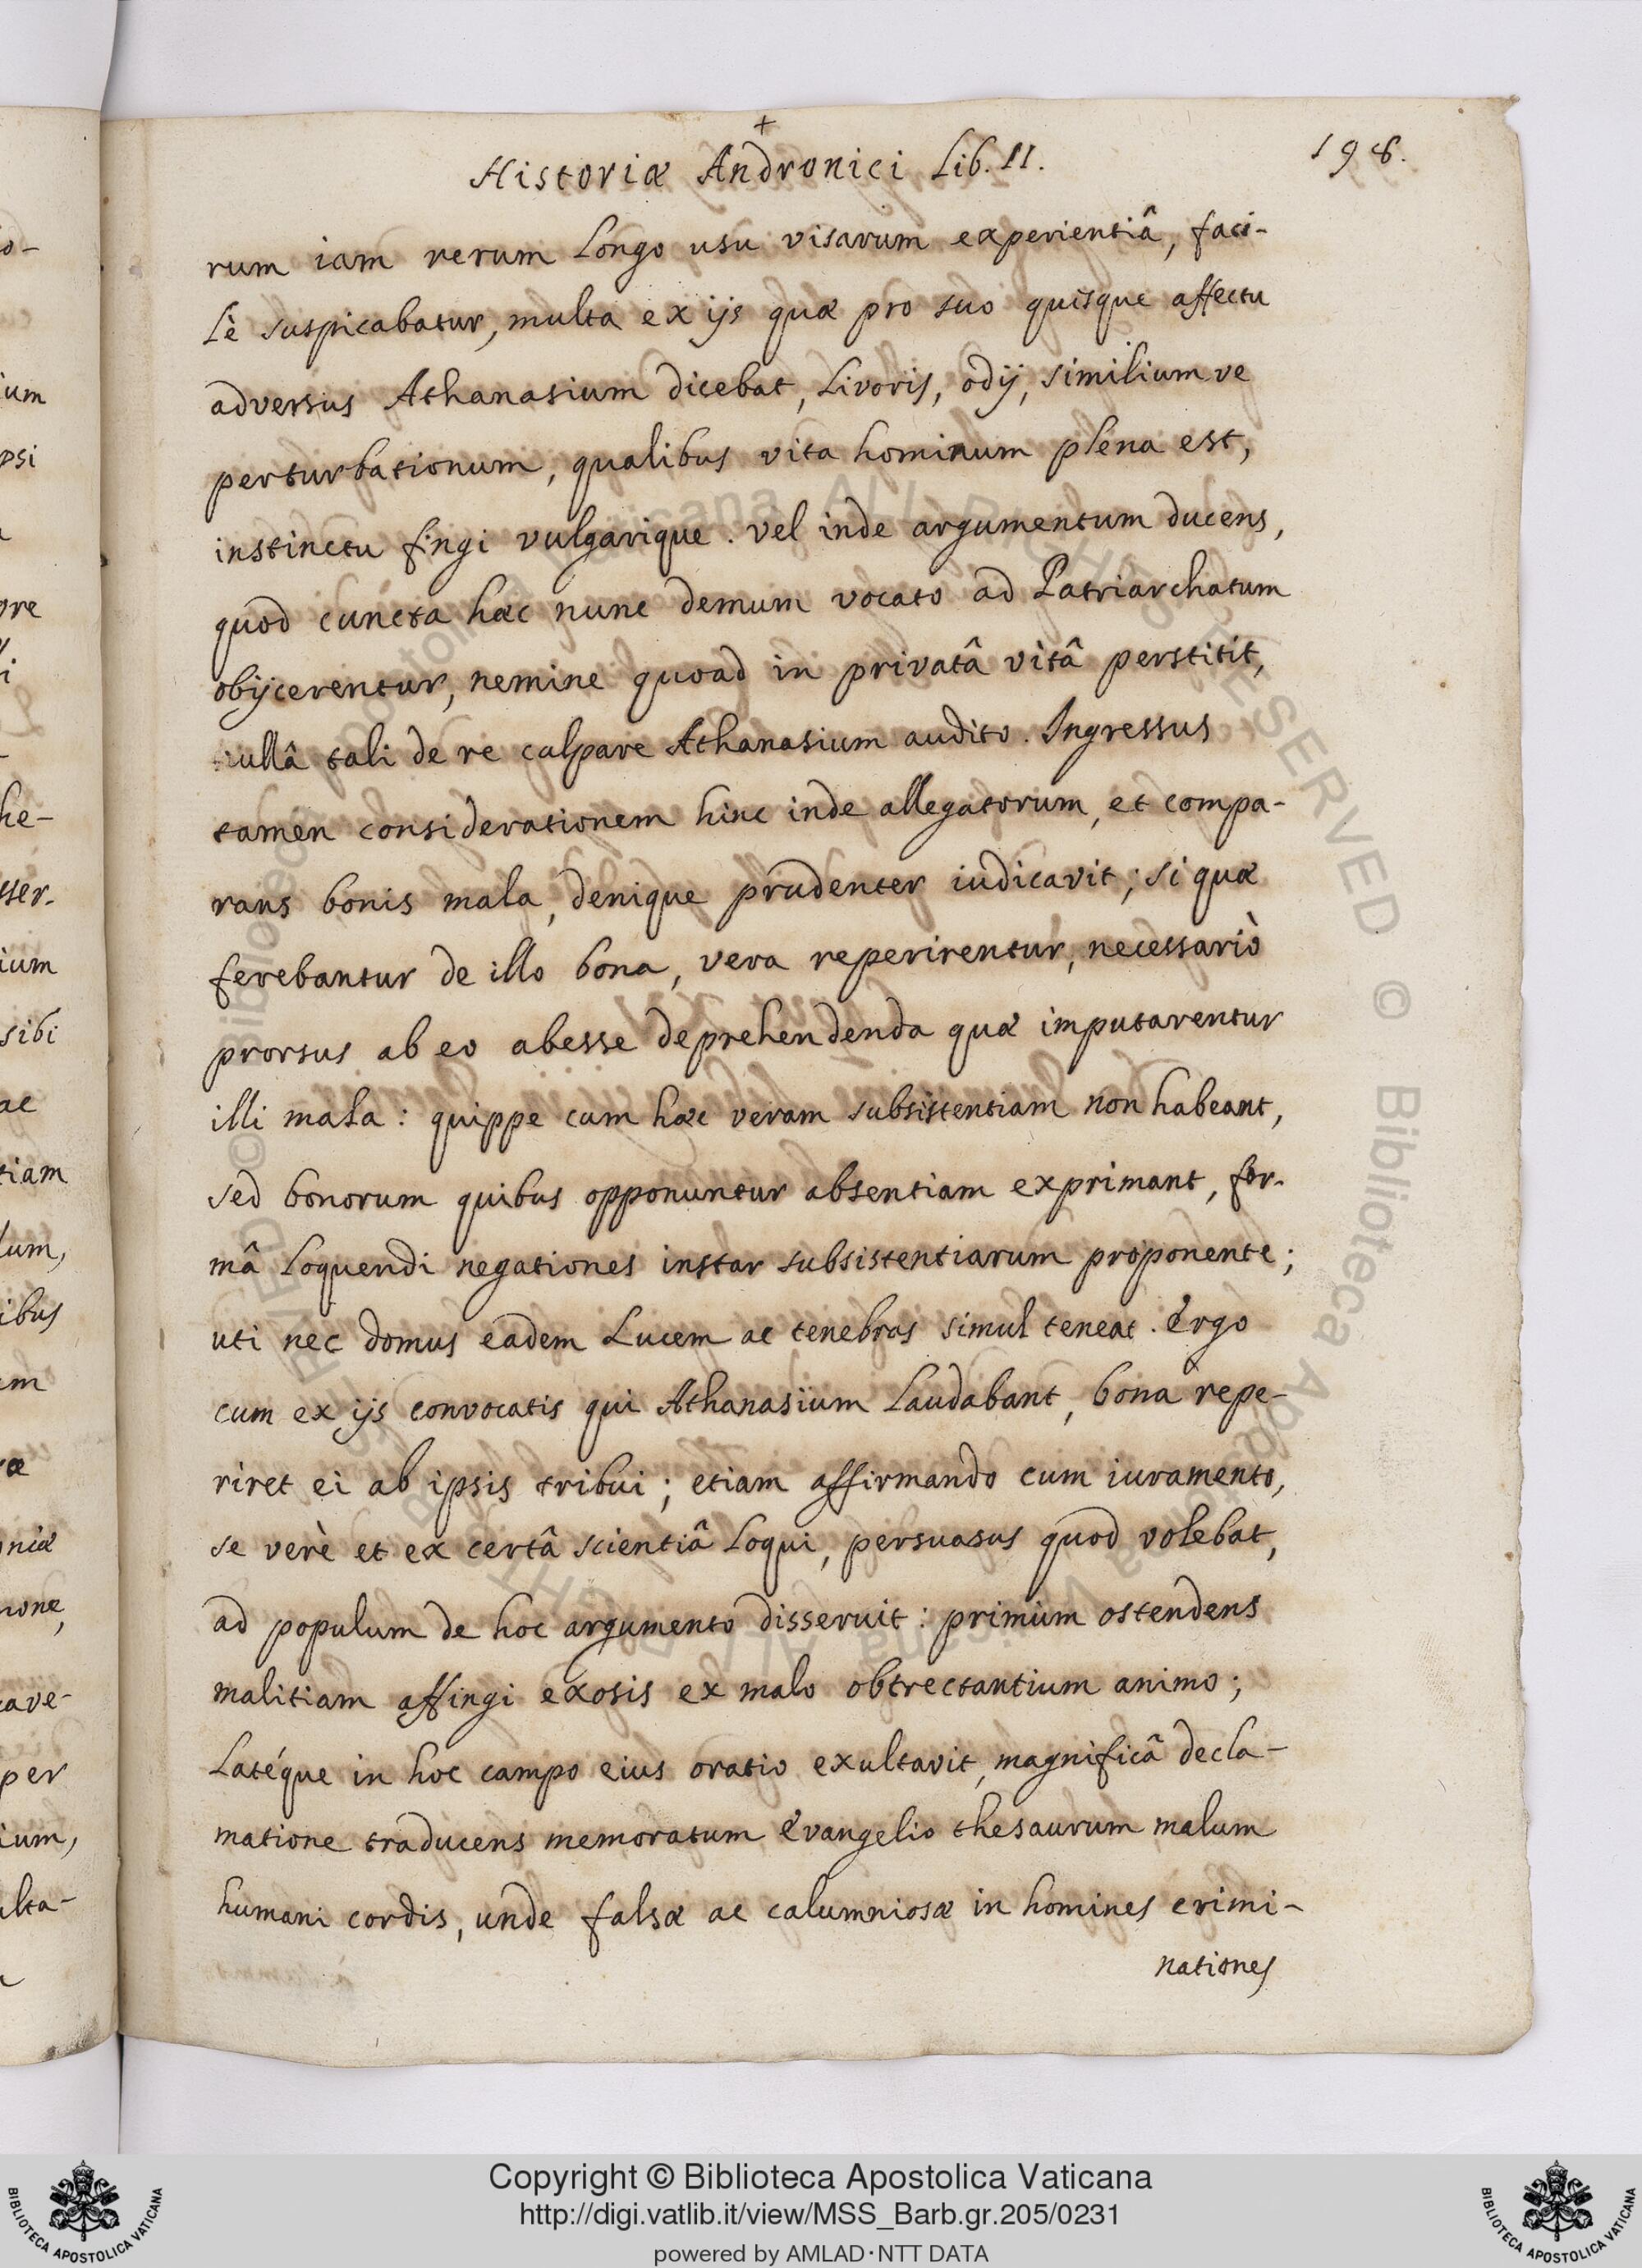 +
Historiæ Andronici Lib. II.
198.
rum iam rerum longo usu visarum experientiâ, faci-
lè suspicabatur, multa ex ijs quæ pro suo quisque affectu
adversus Athanasium dicebat, livoris, odij, similium ve
perturbationum, qualibus vita hominum plena est,
instinctu fingi vulgarique. vel inde argumentum ducens,
quod cuncta hæc nunc demum vocato ad Patriarchatum
obijcerentur, nemine quoad in privatâ vitâ perstitit,
nullâ tali de re culpare Athanasium audito. Ingressus
tamen considerationem hinc inde allegatorum, et compa-
rans bonis mala, denique prudenter iudicavit; si quæ
ferebantur de illo bona, vera reperirentur, necessariò
prorsus ab eo abesse deprehendenda quæ imputarentur
illi mala: quippe cum hæc veram subsistentiam non habeant,
sed bonorum quibus opponuntur absentiam exprimant, for-
mâ loquendi negationes instar subsistentiarum proponente;
uti nec domus eadem lucem ac tenebras simul teneat. Ergo
cum ex ijs convocatis qui Athanasium laudabant, bona repe-
riret ei ab ipsis tribui; etiam affirmando cum iuramento,
se verè et ex certâ scientiâ loqui, persuasus quod volebat,
ad populum de hoc argumento disseruit: primùm ostendens
malitiam affingi exosis ex malo obtrectantium animo;
latéque in hoc campo eius oratio exultavit, magnificâ decla-
matione traducens memoratum Evangelio thesaurum malum
humani cordis, unde falsæ ac calumniosæ in homines crimi-
nationes
Copyright © Biblioteca Apostolica Vaticana
http://digi.vatlib.it/view/MSS_Barb.gr.205/0231
powered by AMLAD·NTT DATA
BIBLIOTECA APOSTOLICA VATICANA
BIBLIOTECA APOSTOLICA VATICANA